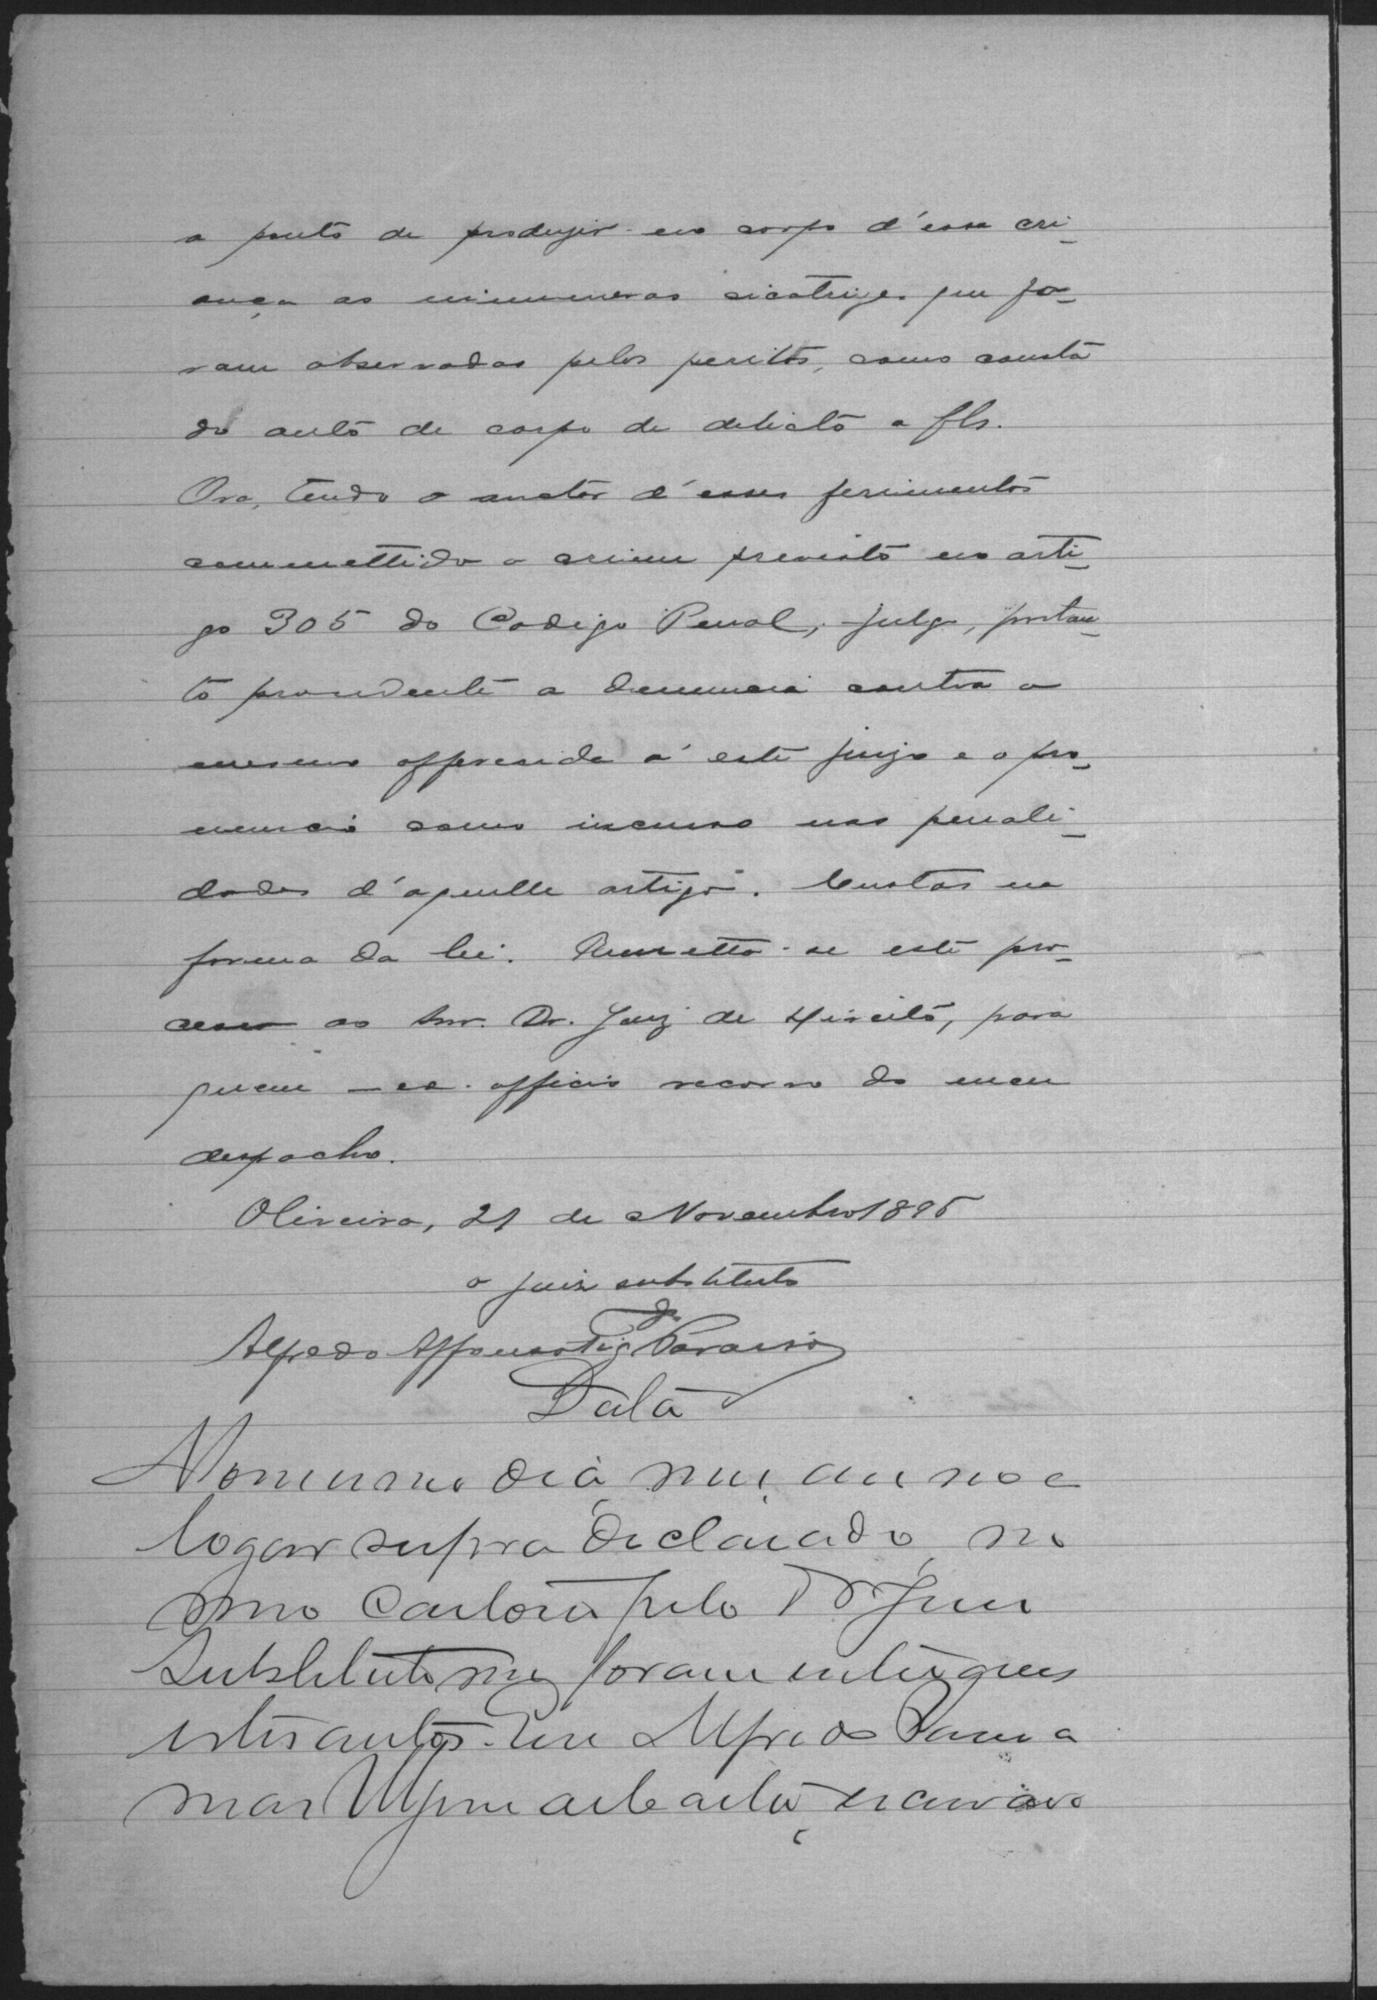 a ponto de produzir no corpo d'essa cri-
ança as innumeras cicatrizes que fo-
ram observadas pelos peritos, como consta
do auto de corpo de delicto a fls.
Ora, tendo o auctor d'esses ferimentos
commettido o crime previsto no arti-
go 305 do Codigo Penal, julgo, portan-
to procedente a denuncia contra o
mesmo offerecida á este juizo e o pro-
nuncio como incurso nas penali-
dades d'aquelle artigo. Custas na
forma da lei. Remetta-se este pro-
cesso ao Snr. Dr. Juiz de Direito, para
quem - ex-officio recorro do meu
despacho.
Oliveira, 21 de Novembro 1895
o juiz substituto
Alfredo Affonso de Paraiso
Data
No mesmo dia, mez, anno e
logar supra declarado, no
meo Cartorio pelo Dr Juiz
Substituto me foram entregues
estes autos. Eu Alfredo
escrivão